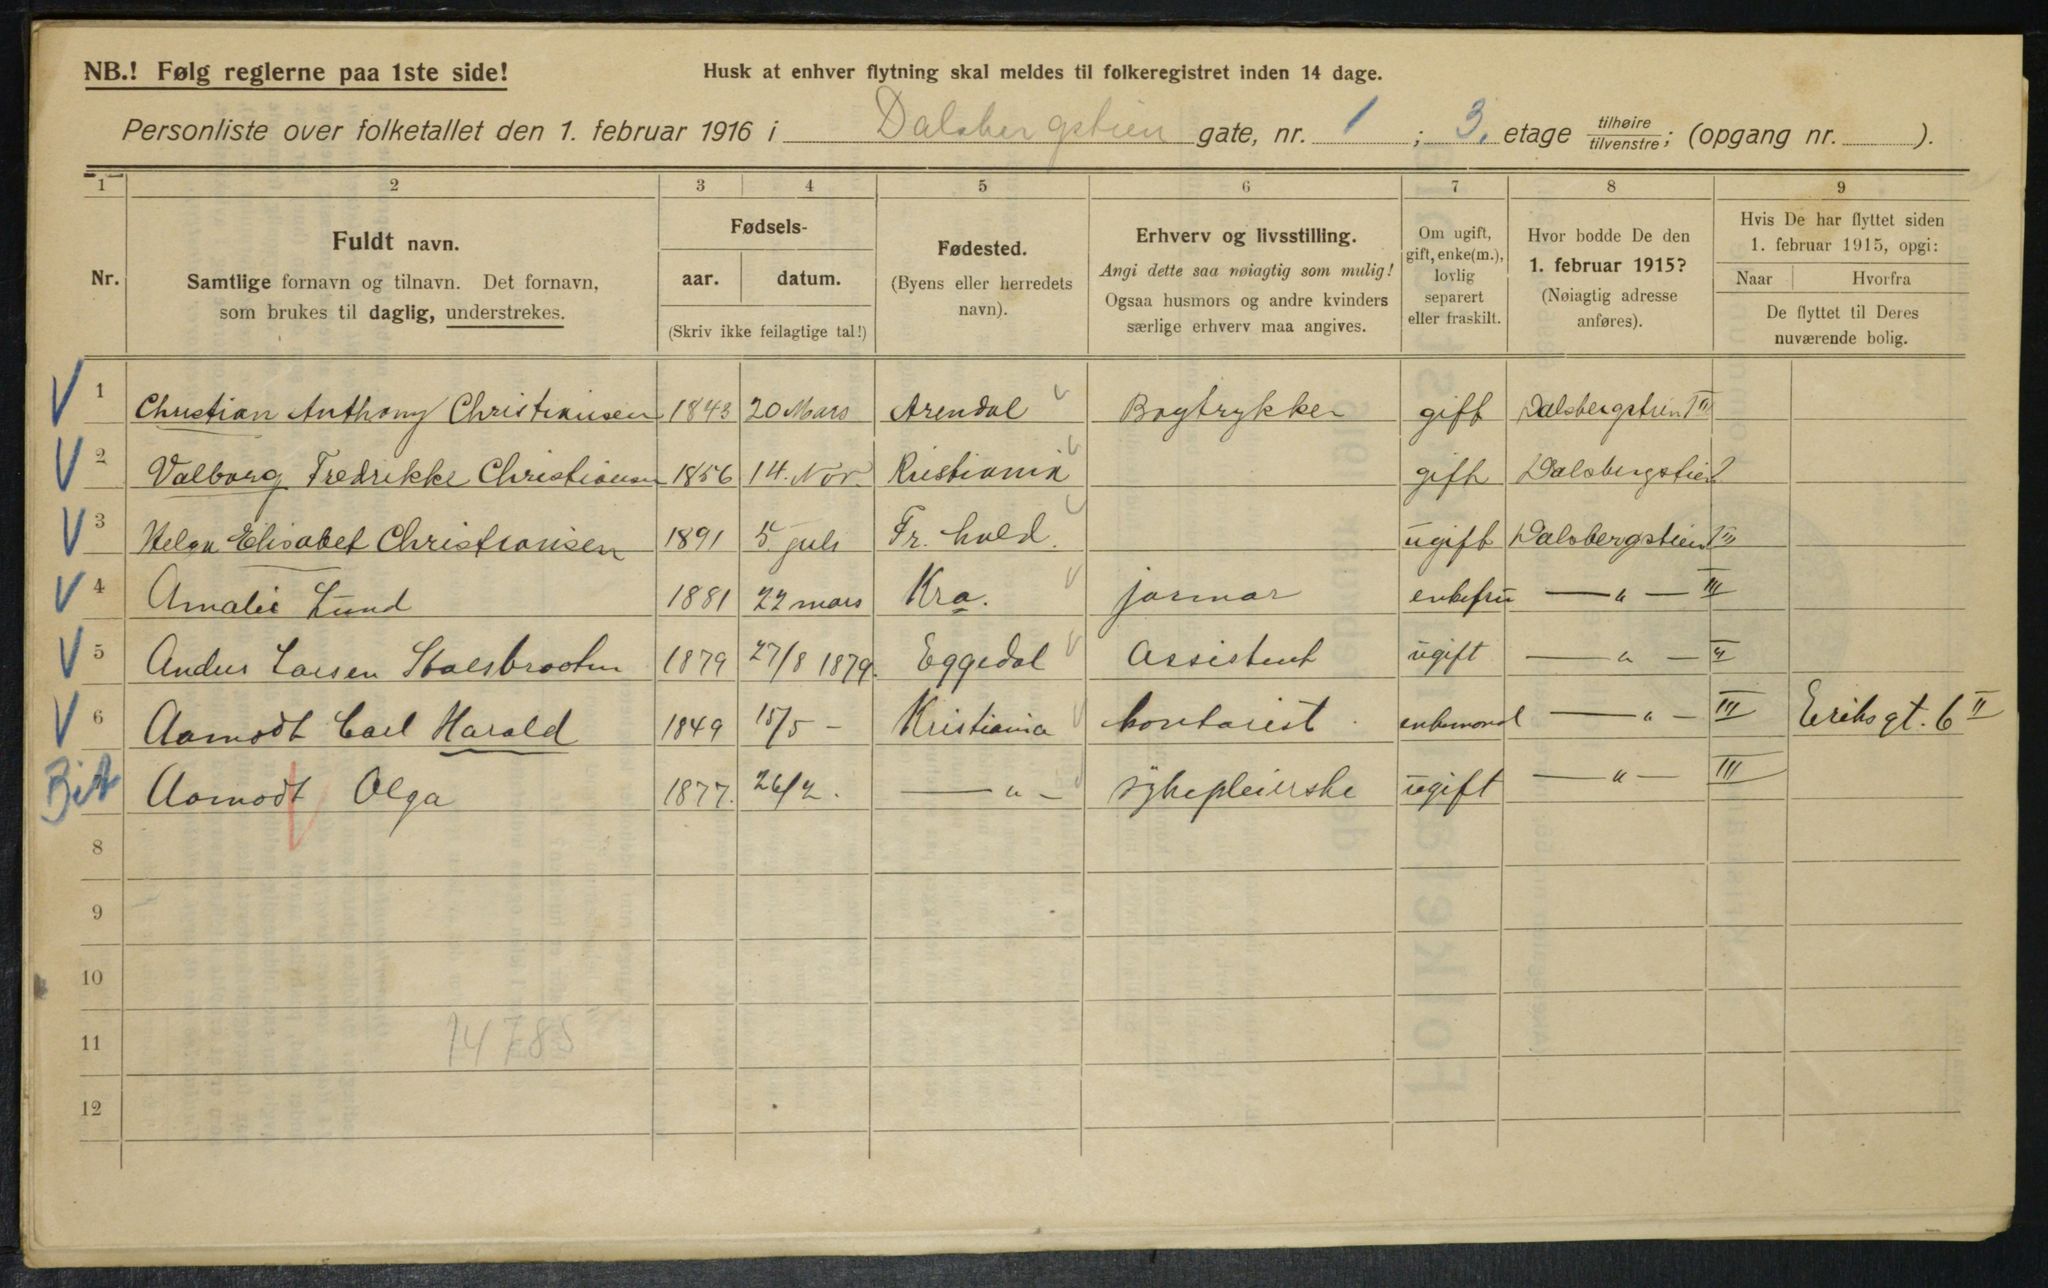 NB.! Følg reglerne paa 1ste side!
Husk at enhver flytning skal meldes til folkeregistret inden 14 dage.
Personliste over folketallet den 1. februar 1916 i Dalsbergstien gate, nr. 1; 3. etage tilhøire/tilvenstre; (opgang nr. ).
1 2 3 4 5 6 7 8 9
Nr.
Fuldt navn.
Samtlige fornavn og tilnavn. Det fornavn,
som brukes til daglig, understrekes.
Fødsels-
aar. datum.
(Skriv ikke feilagtige tal!)
Fødested.
(Byens eller herredets
navn).
Erhverv og livsstilling.
Angi dette saa nøiagtig som mulig!
Ogsaa husmors og andre kvinders
særlige erhverv maa angives.
Om ugift,
gift, enke(m.),
lovlig
separert
eller fraskilt.
Hvor bodde De den
1. februar 1915?
(Nøiagtig adresse
anføres).
Hvis De har flyttet siden
1. februar 1915, opgi:
Naar Hvorfra
De flyttet til Deres
nuværende bolig.
V 1 Christian Anthony Christiansen 1843 20 Mars Arendal Bogtrykker gift Dalsbergstien 1 III
V 2 Valborg Fredrikke Christiansen 1856 14. Nov. Kristiania gift Dalsbergstien
V 3 Helga Elisabet Christiansen 1891 5 juli Fr. hald. ugift Dalsbergstien 1 III
V 4 Amalie Lund 1881 22 mars Kra. enkefru — " — III
V 5 Larsen 1879 27/8 1879. Eggedal Assistent ugift — " —
V 6 Aamodt Carl Harald 1849 15/5 — Kristiania kontorist enkemand — " — III Eriks gt. 6 II
Aamodt Olga 1877. 26/2. — " — sykepleierske ugift — " — III
8
9
10
11
12
14785